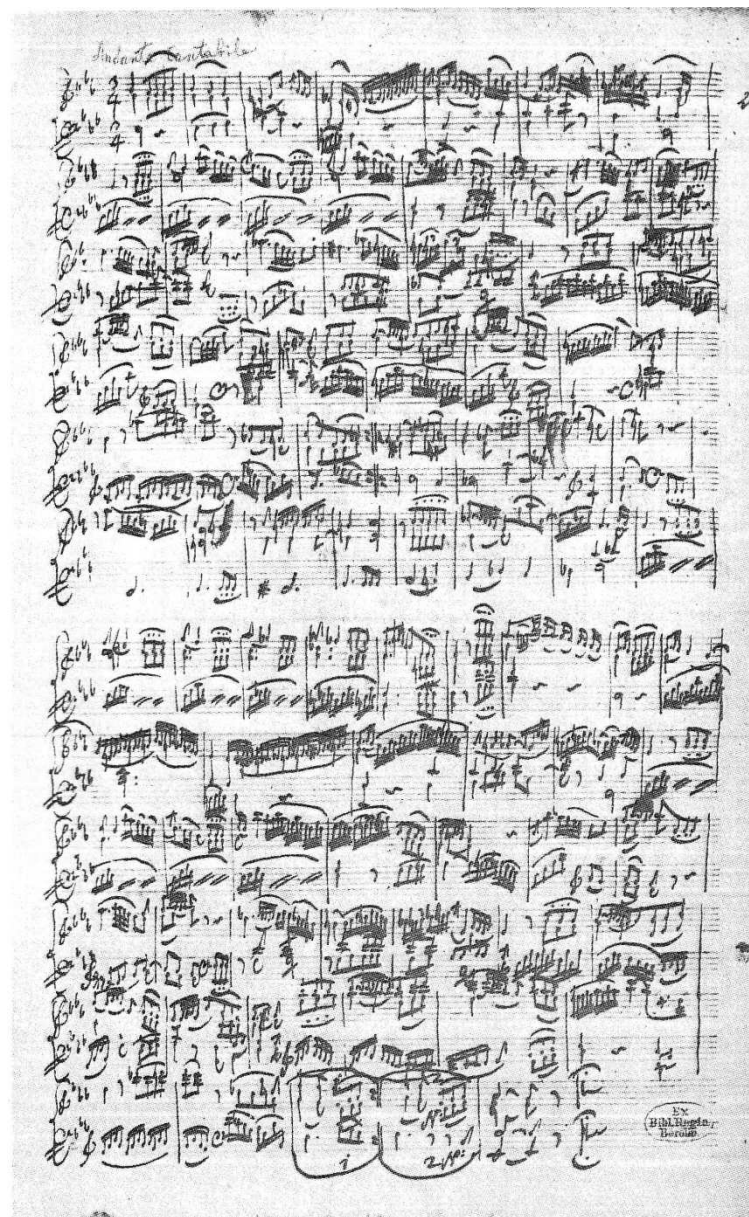 Andante cantabile
3
4
3
4
1
2
Ex
Bibl. Regia
Berolin.